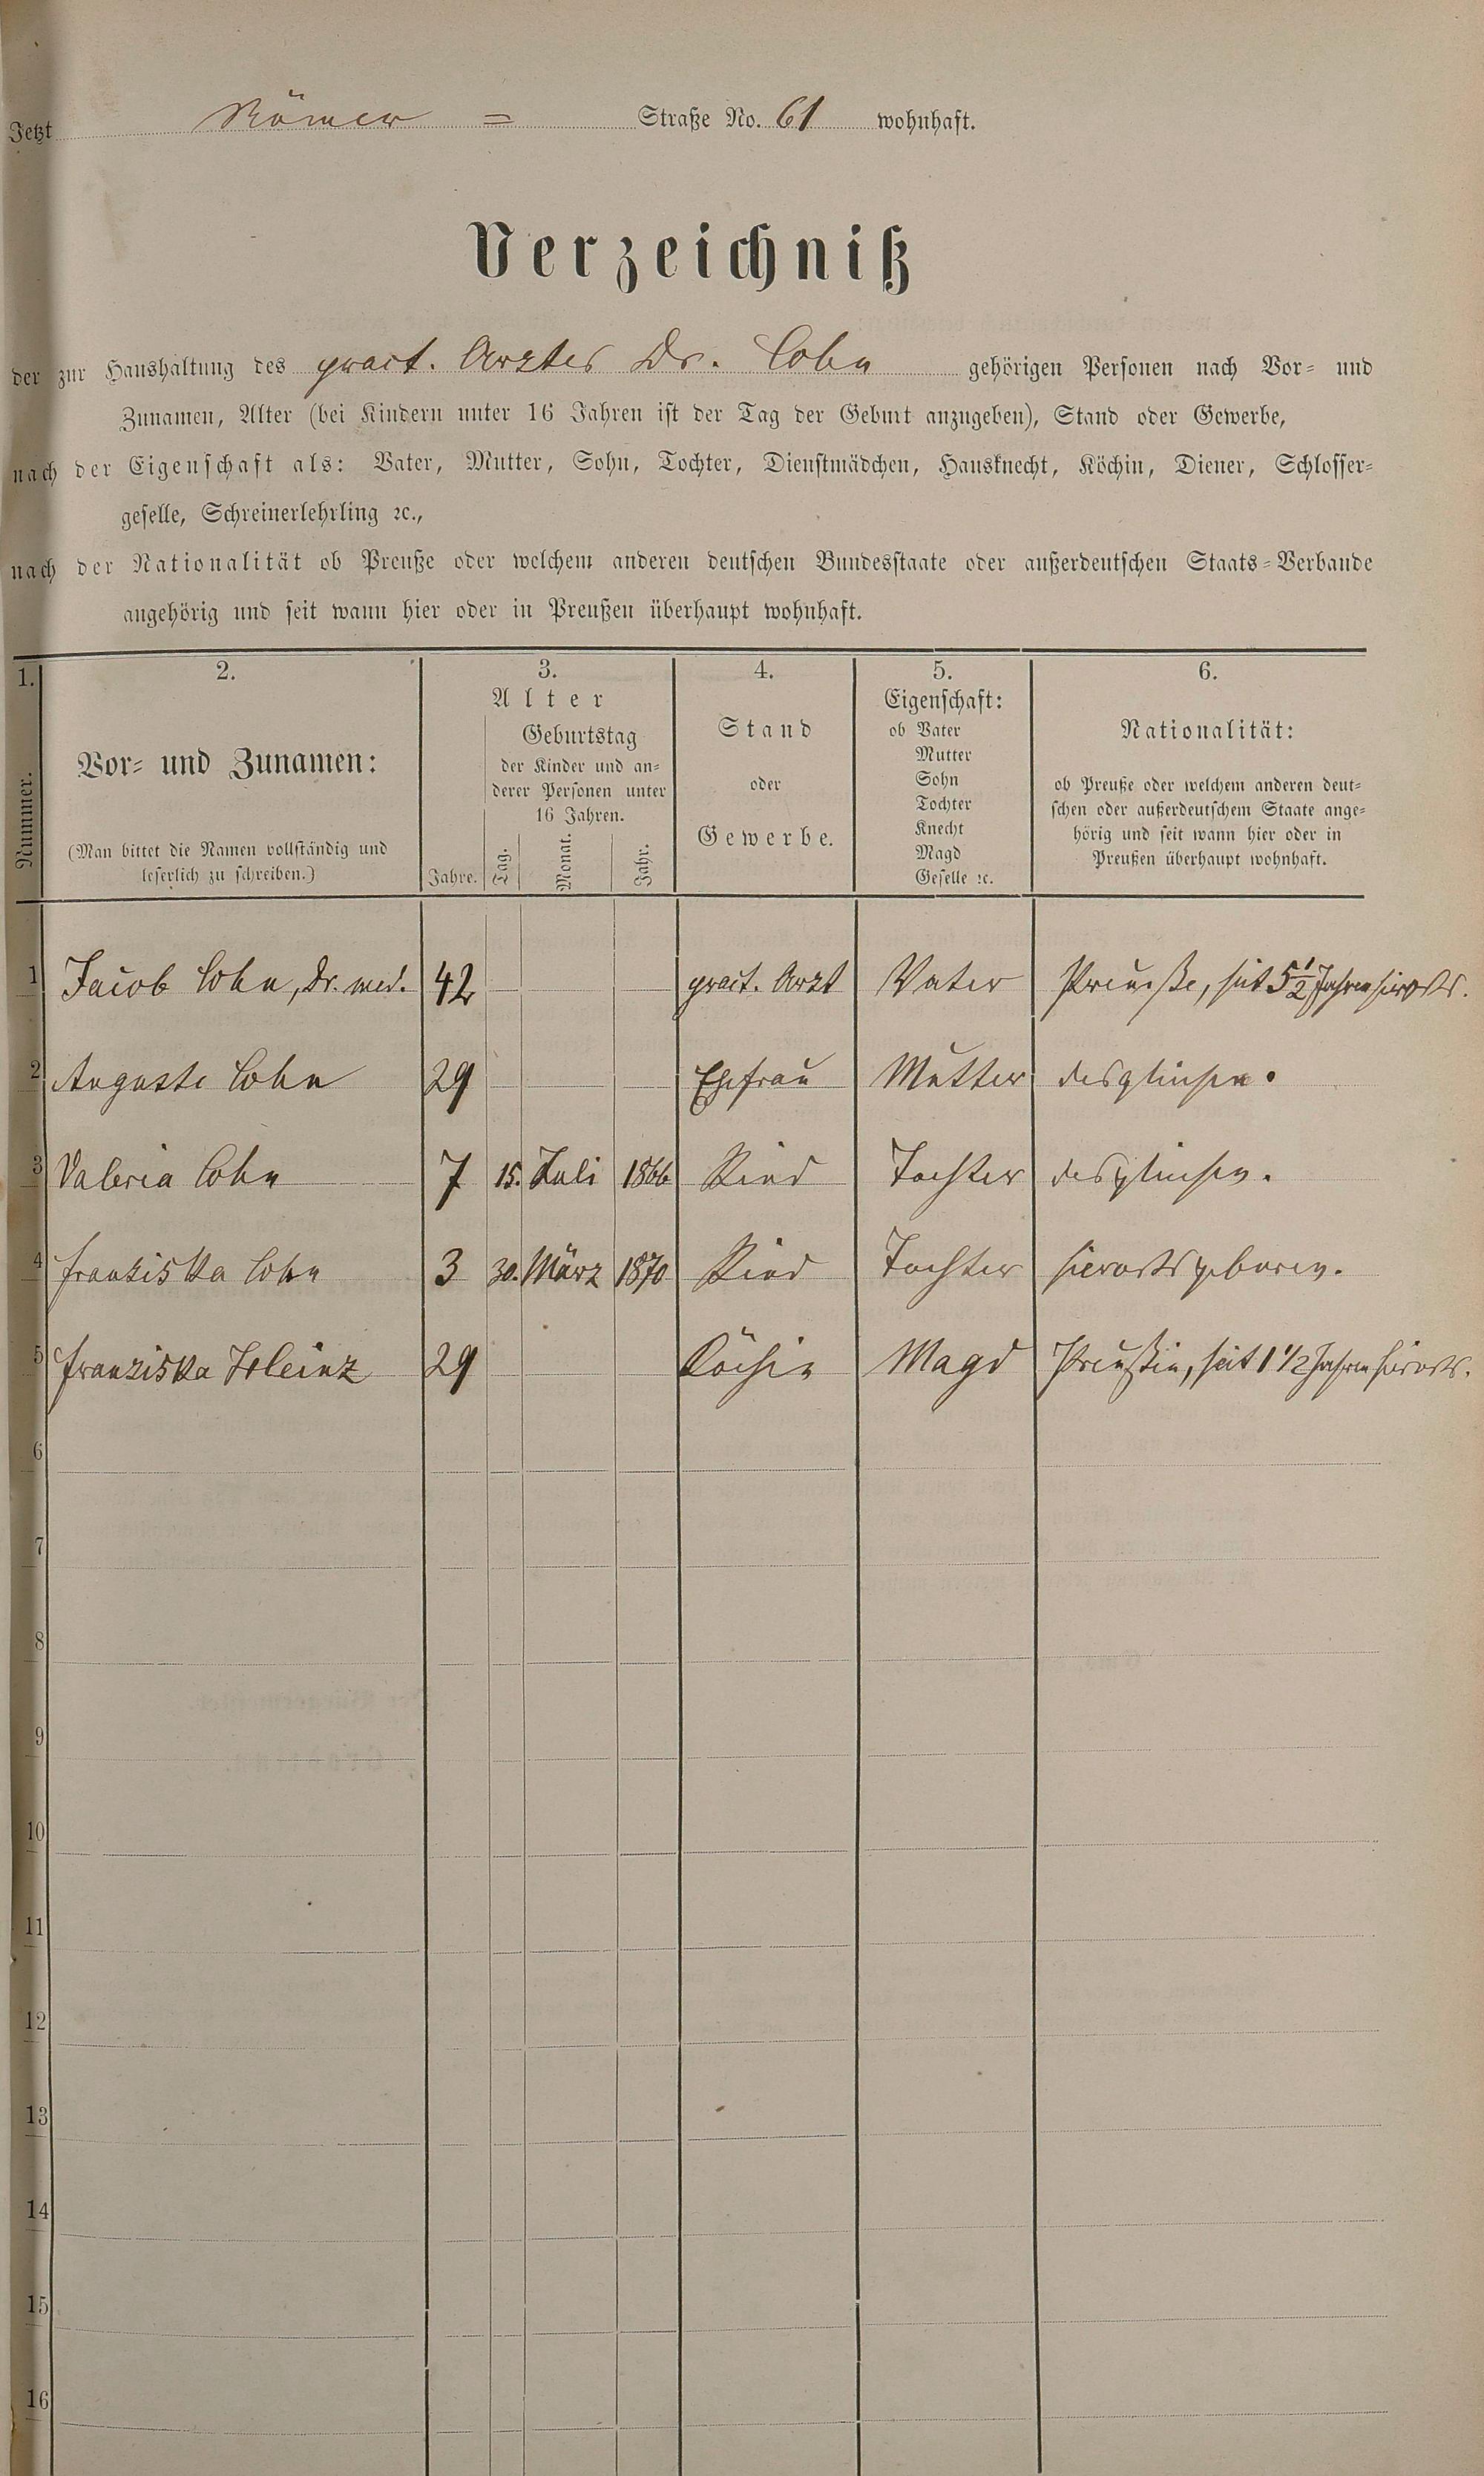 Jetzt Römer = Straße No. 61 wohnhaft.
Verzeichniß
der zur Haushaltung des pract. Arztes Dr. Cohn gehörigen Personen nach Vor- und
Zunamen, Alter (bei Kindern unter 16 Jahren ist der Tag der Geburt anzugeben), Stand oder Gewerbe,
nach der Eigenschaft als: Vater, Mutter, Sohn, Tochter, Dienstmädchen, Hausknecht, Köchin, Diener, Schlosser-
geselle, Schreinerlehrling ꝛc.,
nach der Nationalität ob Preuße oder welchem anderen deutschen Bundesstaate oder außerdeutschen Staats-Verbande
angehörig und seit wann hier oder in Preußen überhaupt wohnhaft.
1.
Nummer.
2.
Vor- und Zunamen:
(Man bittet die Namen vollständig und
leserlich zu schreiben.)
3.
Alter
Jahre.
Geburtstag
der Kinder und an-
derer Personen unter
16 Jahren.
Tag.
Monat.
Jahr.
4.
Stand
oder
Gewerbe.
5.
Eigenschaft:
ob Vater
Mutter
Sohn
Tochter
Knecht
Magd
Geselle ꝛc.
6.
Nationalität:
ob Preuße oder welchem anderen deut-
schen oder außerdeutschem Staate ange-
hörig und seit wann hier oder in
Preußen überhaupt wohnhaft.
1 Jacob Cohn, Dr. med. 42 pract. Arzt Vater Preuße, seit 5 1/2 Jahren hierorts.
2 Auguste Cohn 29 Ehefrau Mutter desgleichen.
3 Valeria Cohn 7 15. Juli 1866 Kind Tochter desgleichen.
4 Franziska Cohn 3 30. März 1870 Kind Tochter hierorts geboren.
5 Franziska 29 Köchin Magd Preußin, seit 1 1/2 Jahren hierorts.
6
7
8
9
10
11
12
13
14
15
16